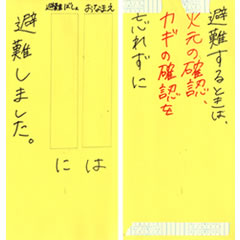 おなまえ
は
避難ばしょ
に
避難しました。
避難するときは、
火元の確認、
カギの確認を
忘れずに